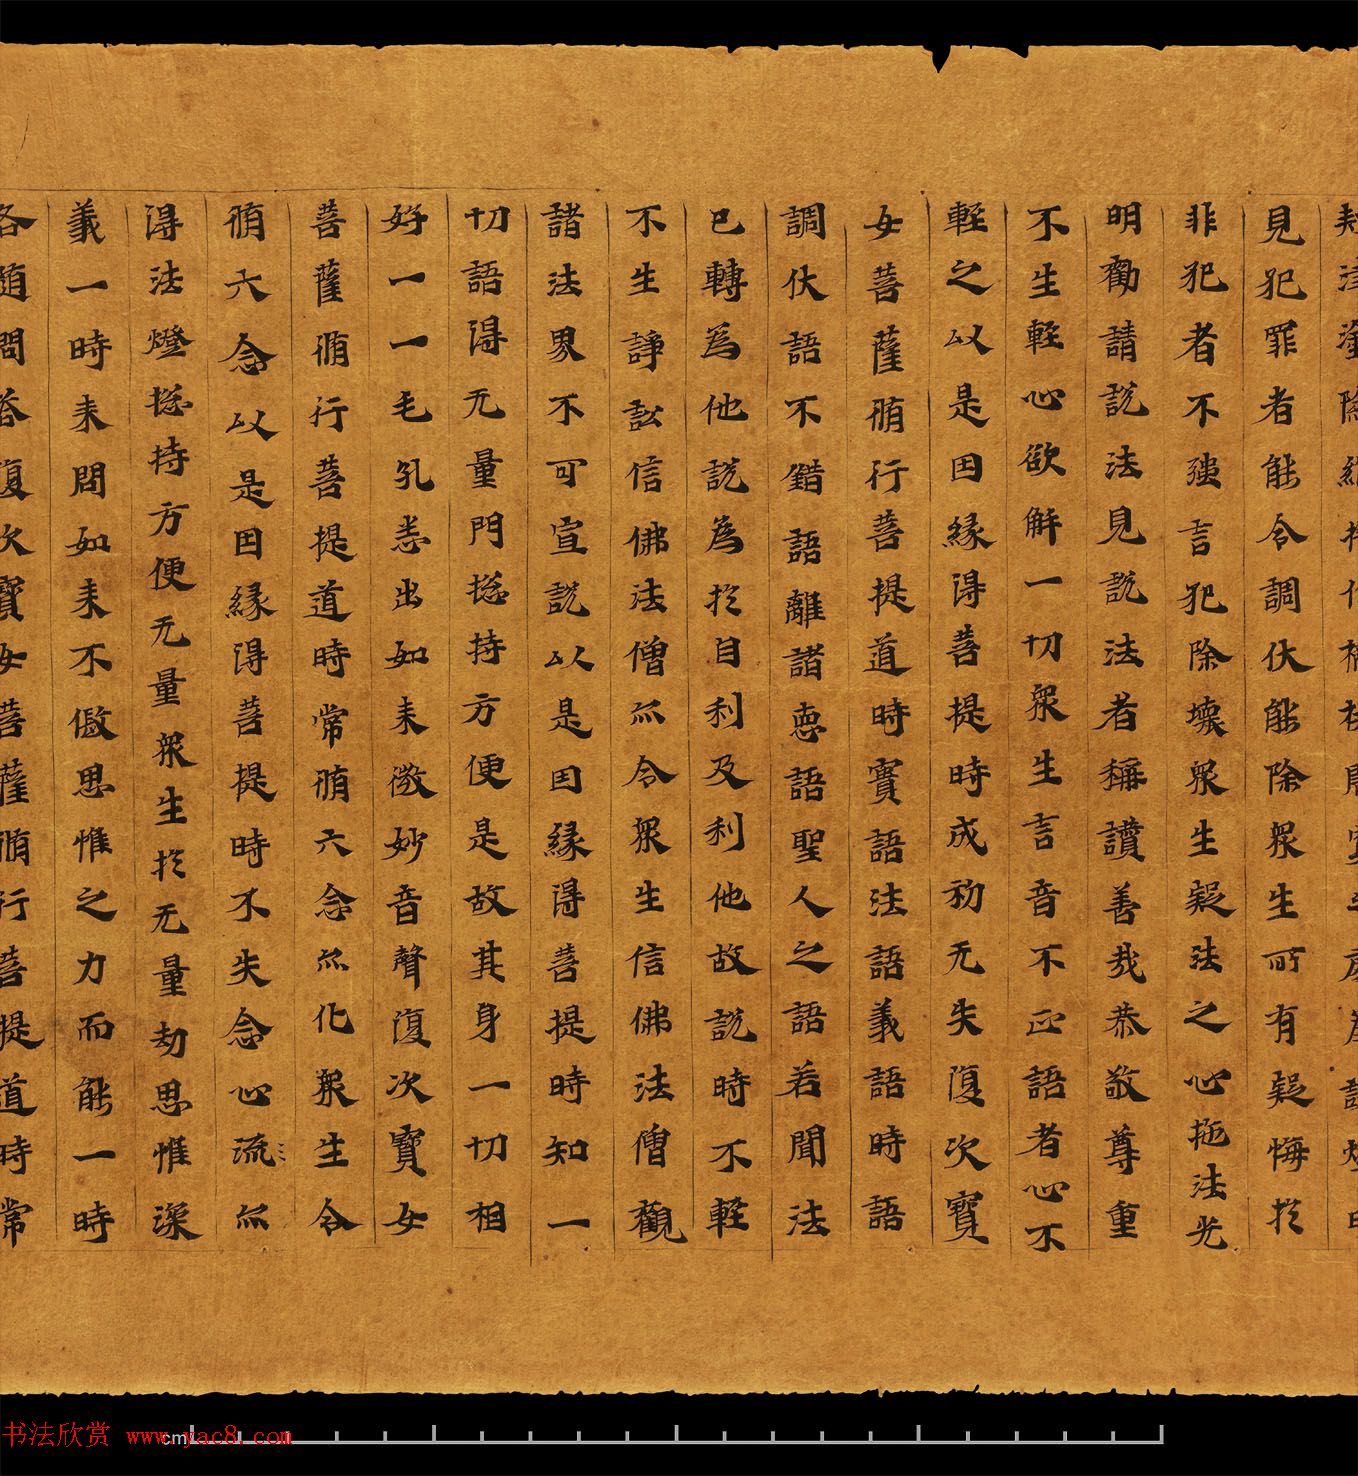 見犯罪者能令調伏能除眾生所有疑悔於
非犯者不強言犯除壞眾生疑法之心施法光
明勸請說法見說法者稱讚善哉恭敬尊重
不生輕心欲解一切眾生言音不正語者心不
輕之以是因緣得菩提時成初无失復次寶
女菩薩脩行菩提道時實語法語義語時語
調伏語不錯語離諸惡語聖人之語若聞法
已轉為他說為於自利及利他故說時不輕
不生諍訟信佛法僧亦令眾生信佛法僧觀
諸法界不可宣說以是因緣得菩提時知一
切語得无量門揔持方便是故其身一切相
好一一毛孔悉出如来微妙音聲復次寶女
菩薩脩行菩提道時常脩六念亦化眾生令
脩六念以是因緣得菩提時不失念心流亦
得法燈揔持方便无量眾生於无量劫思惟深
義一時来問如来不假思惟之力而能一時
各隨問答復次寶女菩薩脩行菩提道時常
书法欣赏 www.yac8.com
cm